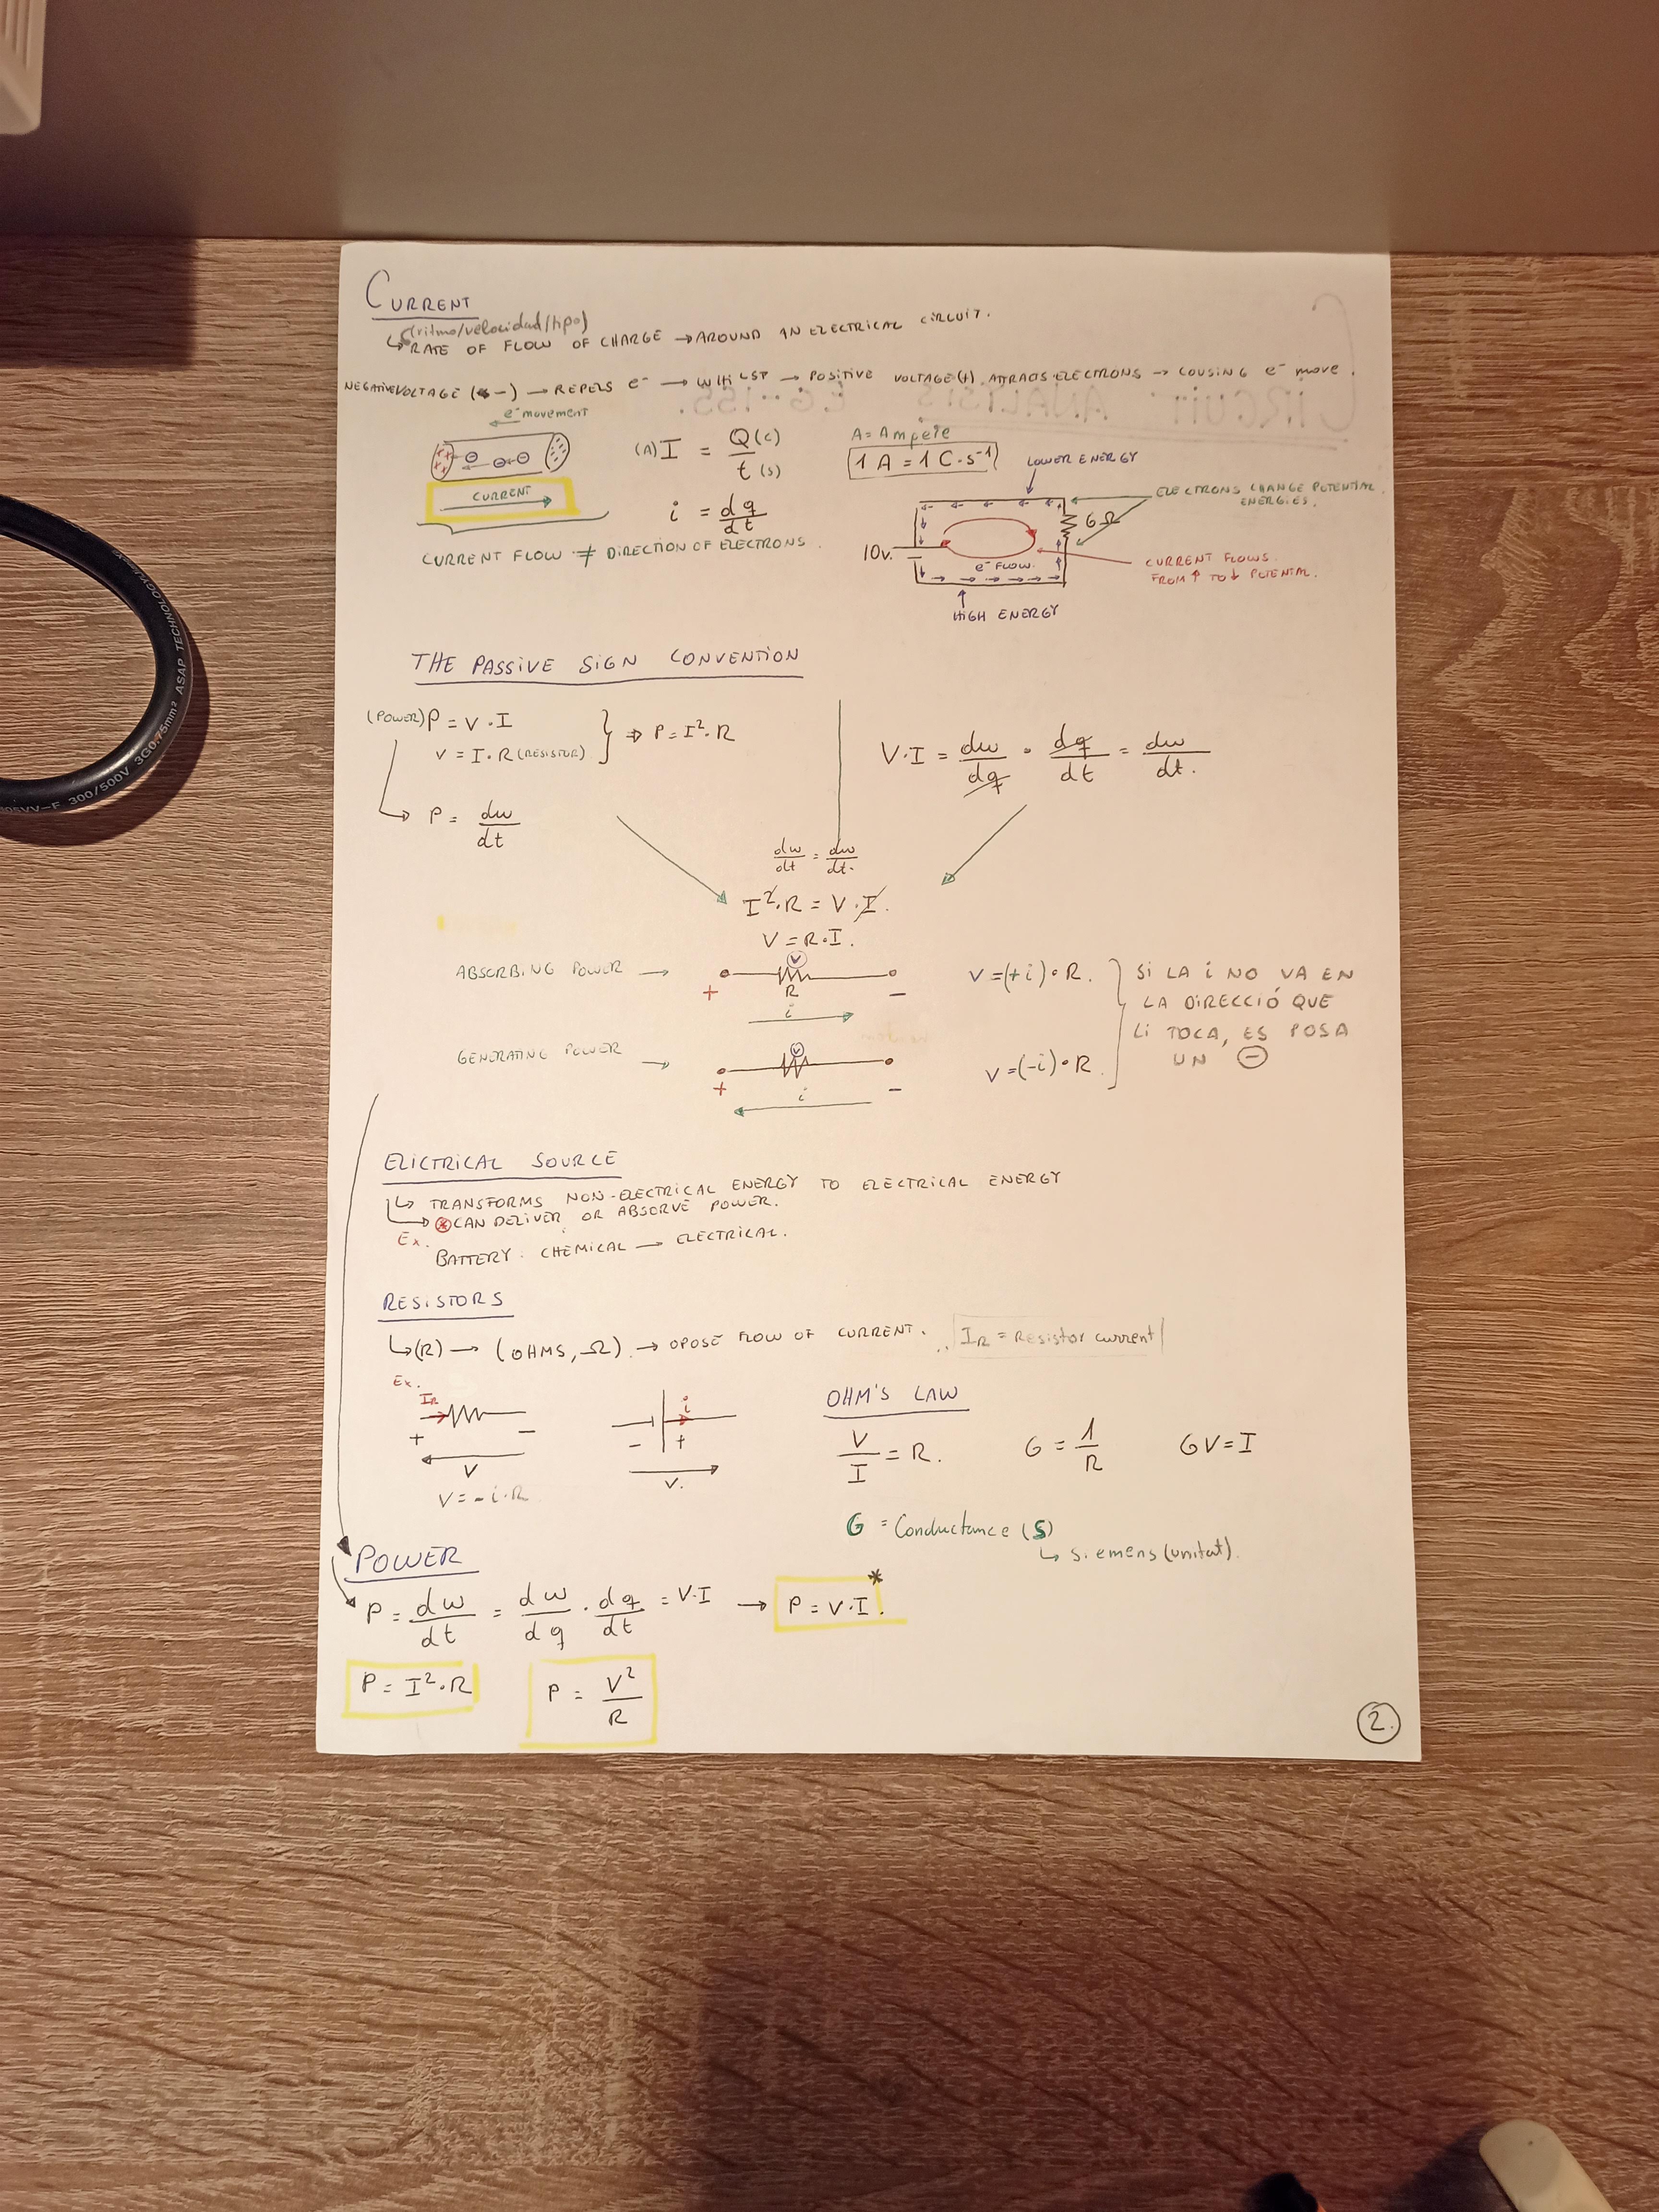 CURRENT
(ritmo/velocidad/tipo)
↳ RATE OF FLOW OF CHARGE → AROUND AN ELECTRICAL CIRCUIT.
NEGATIVE VOLTAGE (-) → REPELS e⁻ → WHILST → POSITIVE VOLTAGE (+) ATTRACTS ELECTRONS → COUSING e⁻ move.
e⁻ movement
CURRENT
CURRENT FLOW ≠ DIRECTION OF ELECTRONS.
(A) I = Q(c) / t(s)
i = dq / dt
A = Ampere
1 A = 1 C·s⁻¹
LOWER ENERGY
ELECTRONS CHANGE POTENTIAL
ENERGIES.
6Ω
10v.
e⁻ FLOW.
CURRENT FLOWS
FROM ↑ TO ↓ POTENTIAL.
HIGH ENERGY
THE PASSIVE SIGN CONVENTION
(POWER) P = V·I
V = I·R (RESISTOR)
⇒ P = I²·R
↳ P = dw / dt
V·I = dw / dq · dq / dt = dw / dt.
dw / dt = dw / dt.
I²·R = V·I.
V = R·I.
ABSORBING POWER →
V
R
+ -
i
V = (+i)·R.
GENERATING POWER →
V
+ -
i
V = (-i)·R.
SI LA i NO VA EN
LA DIRECCIÓ QUE
LI TOCA, ES POSA
UN ⊖
ELICTRICAL SOURCE
↳ TRANSFORMS NON-ELECTRICAL ENERGY TO ELECTRICAL ENERGY
→ ⊗ CAN DELIVER OR ABSORVE POWER.
Ex.
BATTERY: CHEMICAL → ELECTRICAL.
RESISTORS
↳ (R) → (OHMS, Ω) → OPOSE FLOW OF CURRENT.
I_R = Resistor current
Ex.
I_R
+ -
V
V = -i·R
i
- +
V.
OHM'S LAW
V / I = R.
G = 1 / R
GV = I
G = Conductance (S)
↳ Siemens (unitat).
POWER
P = dw / dt = dw / dq · dq / dt = V·I → P = V·I. *
P = I²·R
P = V² / R
2.
05VV-F 300/500V 3G0.75mm² ASAP TECHNOLOGY